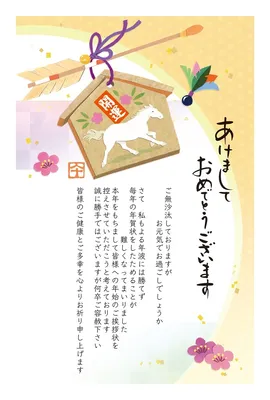 あけまして
おめでとうございます
ご無沙汰しておりますが
お元気でお過ごしでしょうか
さて 私もよる年波には勝てず
毎年の年賀状をしたためることが
難しくなってまいりました
本年をもちまして皆様への年始のご挨拶状を
控えさせていただこうと考えております
誠に勝手ではございますが何卒ご容赦下さい
皆様のご健康とご多幸を心よりお祈り申し上げます
開運